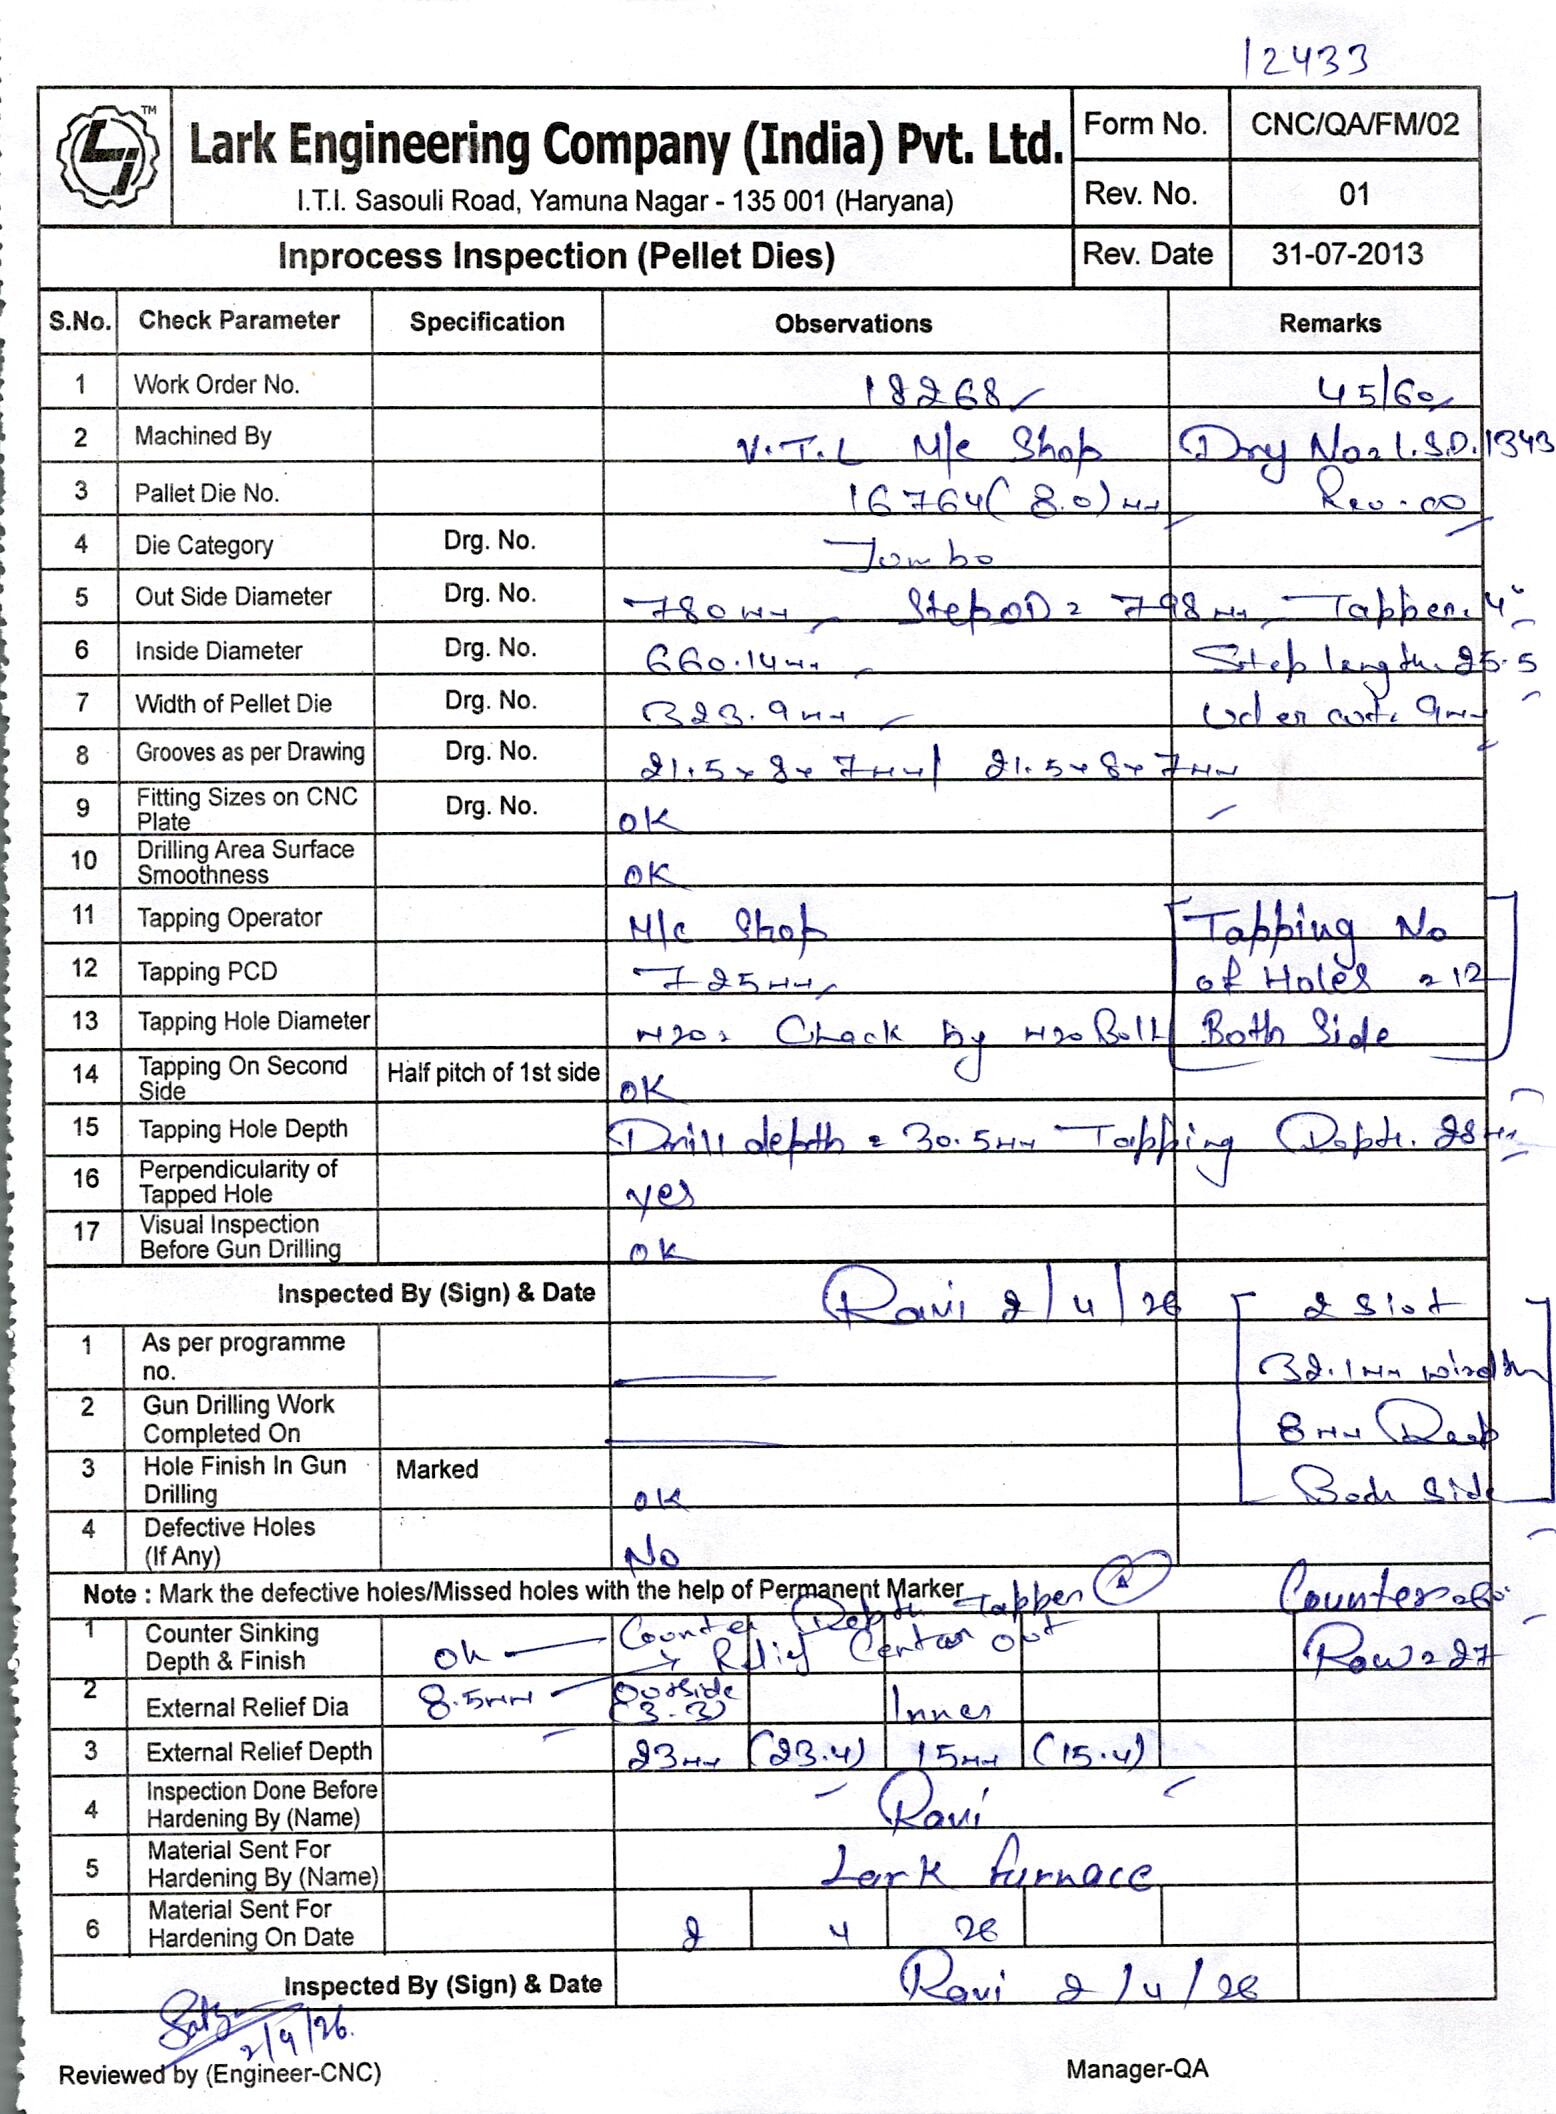 12433
TM
Lark Engineering Company (India) Pvt. Ltd.
I.T.I. Sasouli Road, Yamuna Nagar - 135 001 (Haryana)
Form No. CNC/QA/FM/02
Rev. No. 01
Inprocess Inspection (Pellet Dies) Rev. Date 31-07-2013
S.No. Check Parameter Specification Observations Remarks
1 Work Order No. 18268 45/60
2 Machined By V.T.L M/c Shop Drg No = L.S.D. 1343
3 Pallet Die No. 16764 (8.0) mm Rev. 00
4 Die Category Drg. No. Jumbo
5 Out Side Diameter Drg. No. 780mm Step OD = 798mm Tapper. 4°
6 Inside Diameter Drg. No. 660.14mm Step length. 25.5
7 Width of Pellet Die Drg. No. 323.9mm Uder cut. 9mm
8 Grooves as per Drawing Drg. No. 21.5 x 8 x 7mm / 21.5 x 8 x 7mm
9 Fitting Sizes on CNC Plate Drg. No. OK
10 Drilling Area Surface Smoothness OK
11 Tapping Operator M/c Shop Tapping No
12 Tapping PCD 725mm of Holes = 12
13 Tapping Hole Diameter M20 = Check by M20 Bolt Both Side
14 Tapping On Second Side Half pitch of 1st side OK
15 Tapping Hole Depth Drill depth = 30.5mm Tapping Depth. 28mm
16 Perpendicularity of Tapped Hole yes
17 Visual Inspection Before Gun Drilling OK
Inspected By (Sign) & Date Ravi 2/4/26 2 Slot
1 As per programme no. 32.1mm width
2 Gun Drilling Work Completed On 8mm Deep
3 Hole Finish In Gun Drilling Marked OK Both Side
4 Defective Holes (If Any) No
Note : Mark the defective holes/Missed holes with the help of Permanent Marker
Counter Depth Tapper A Counter
1 Counter Sinking Depth & Finish OK Relief Center out Row = 27
2 External Relief Dia 8.5mm Outside (3.3) Inner
3 External Relief Depth 23mm (23.4) 15mm (15.4)
4 Inspection Done Before Hardening By (Name) Ravi
5 Material Sent For Hardening By (Name) Lark furnace
6 Material Sent For Hardening On Date 2 4 26
Inspected By (Sign) & Date Ravi 2/4/26
2/4/26
Reviewed by (Engineer-CNC) Manager-QA